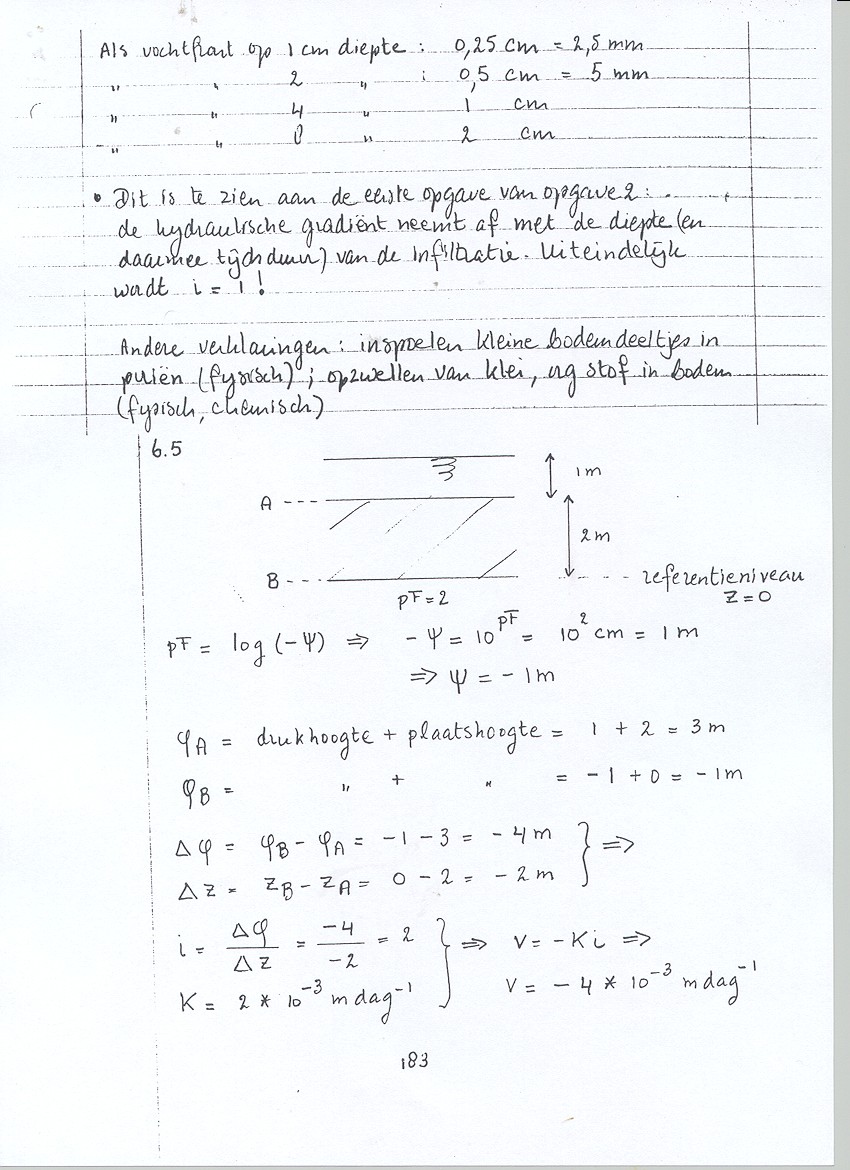 Als vochtfront op 1 cm diepte : 0,25 cm = 2,5 mm
" " 2 " : 0,5 cm = 5 mm
" " 4 " 1 cm
" " 8 " 2 cm
• Dit is te zien aan de eerste opgave van opgave 2 :
de hydraulische gradiënt neemt af met de diepte (en
daarmee tijdsduur) van de infiltratie. Uiteindelijk
wordt i = 1 !
Andere verklaringen : inspoelen kleine bodemdeeltjes in
poriën (fysisch) ; opzwellen van klei, org stof in bodem
(fysisch, chemisch)
6.5
1m
A ---
2m
B --- --- referentieniveau
pF = 2 z = 0
pF = log (-ψ) ⇒ -ψ = 10^pF = 10^2 cm = 1 m
⇒ ψ = -1m
φA = drukhoogte + plaatshoogte = 1 + 2 = 3 m
φB = " + " = -1 + 0 = -1m
Δφ = φB - φA = -1 - 3 = -4 m } ⇒
Δz = zB - zA = 0 - 2 = -2 m
i = Δφ/Δz = -4/-2 = 2 } ⇒ v = -Ki ⇒
K = 2 * 10^-3 m dag^-1 v = -4 * 10^-3 m dag^-1
183